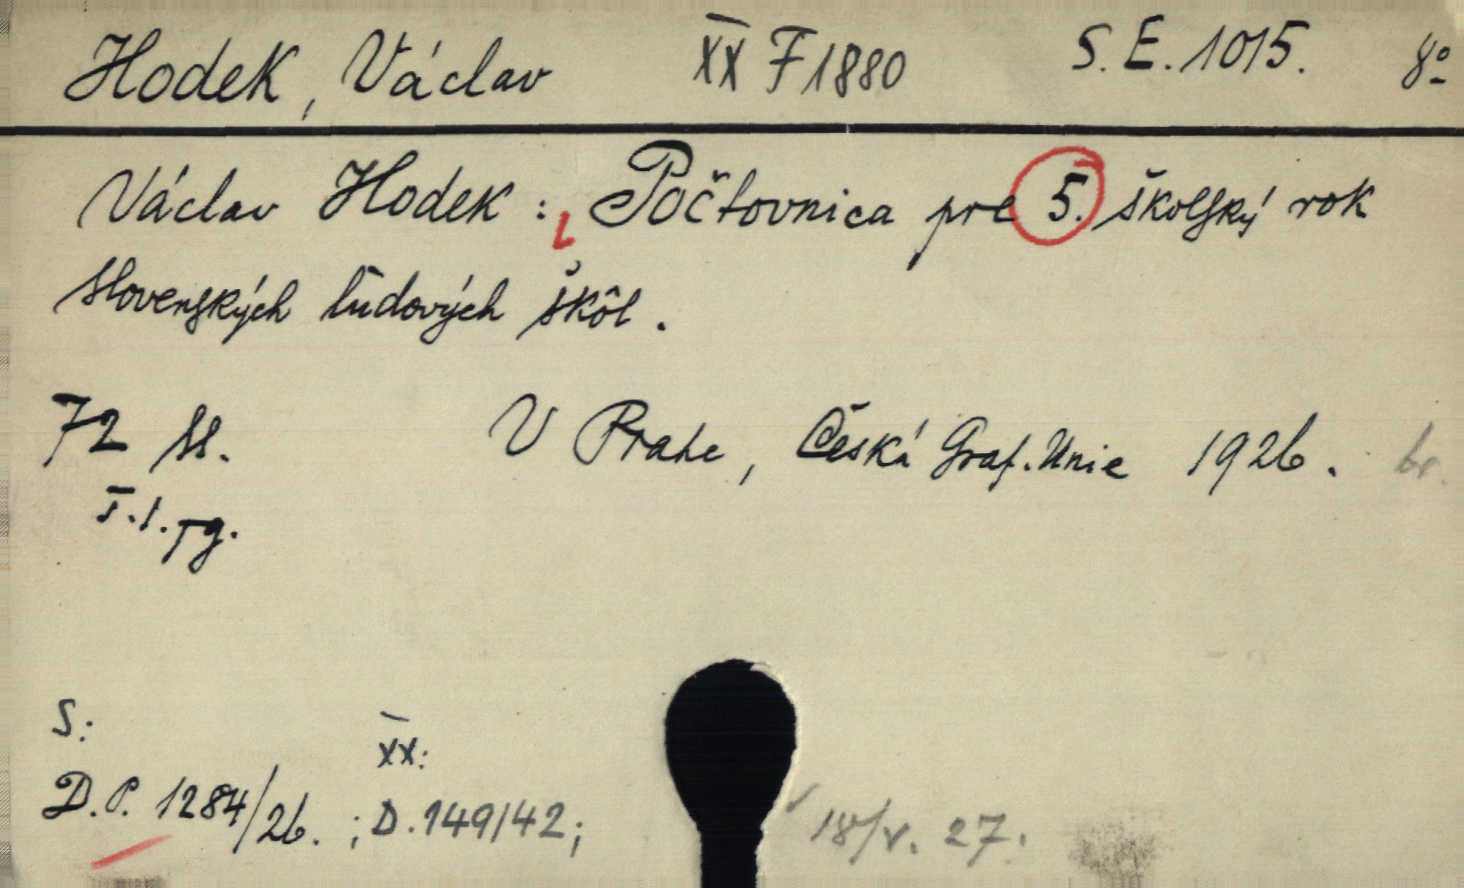 Hodek, Václav XX F 1880 S. E. 1015. 8º
Václav Hodek: Počtovnica pre 5. školský rok
slovenských ľudových škôl.
72 s.
V Prahe, Česká Graf. Unie 1926. br.
I. 1. pg.
S:
XX:
D. P. 1284/26. ; D. 149/42;
18/V. 27.